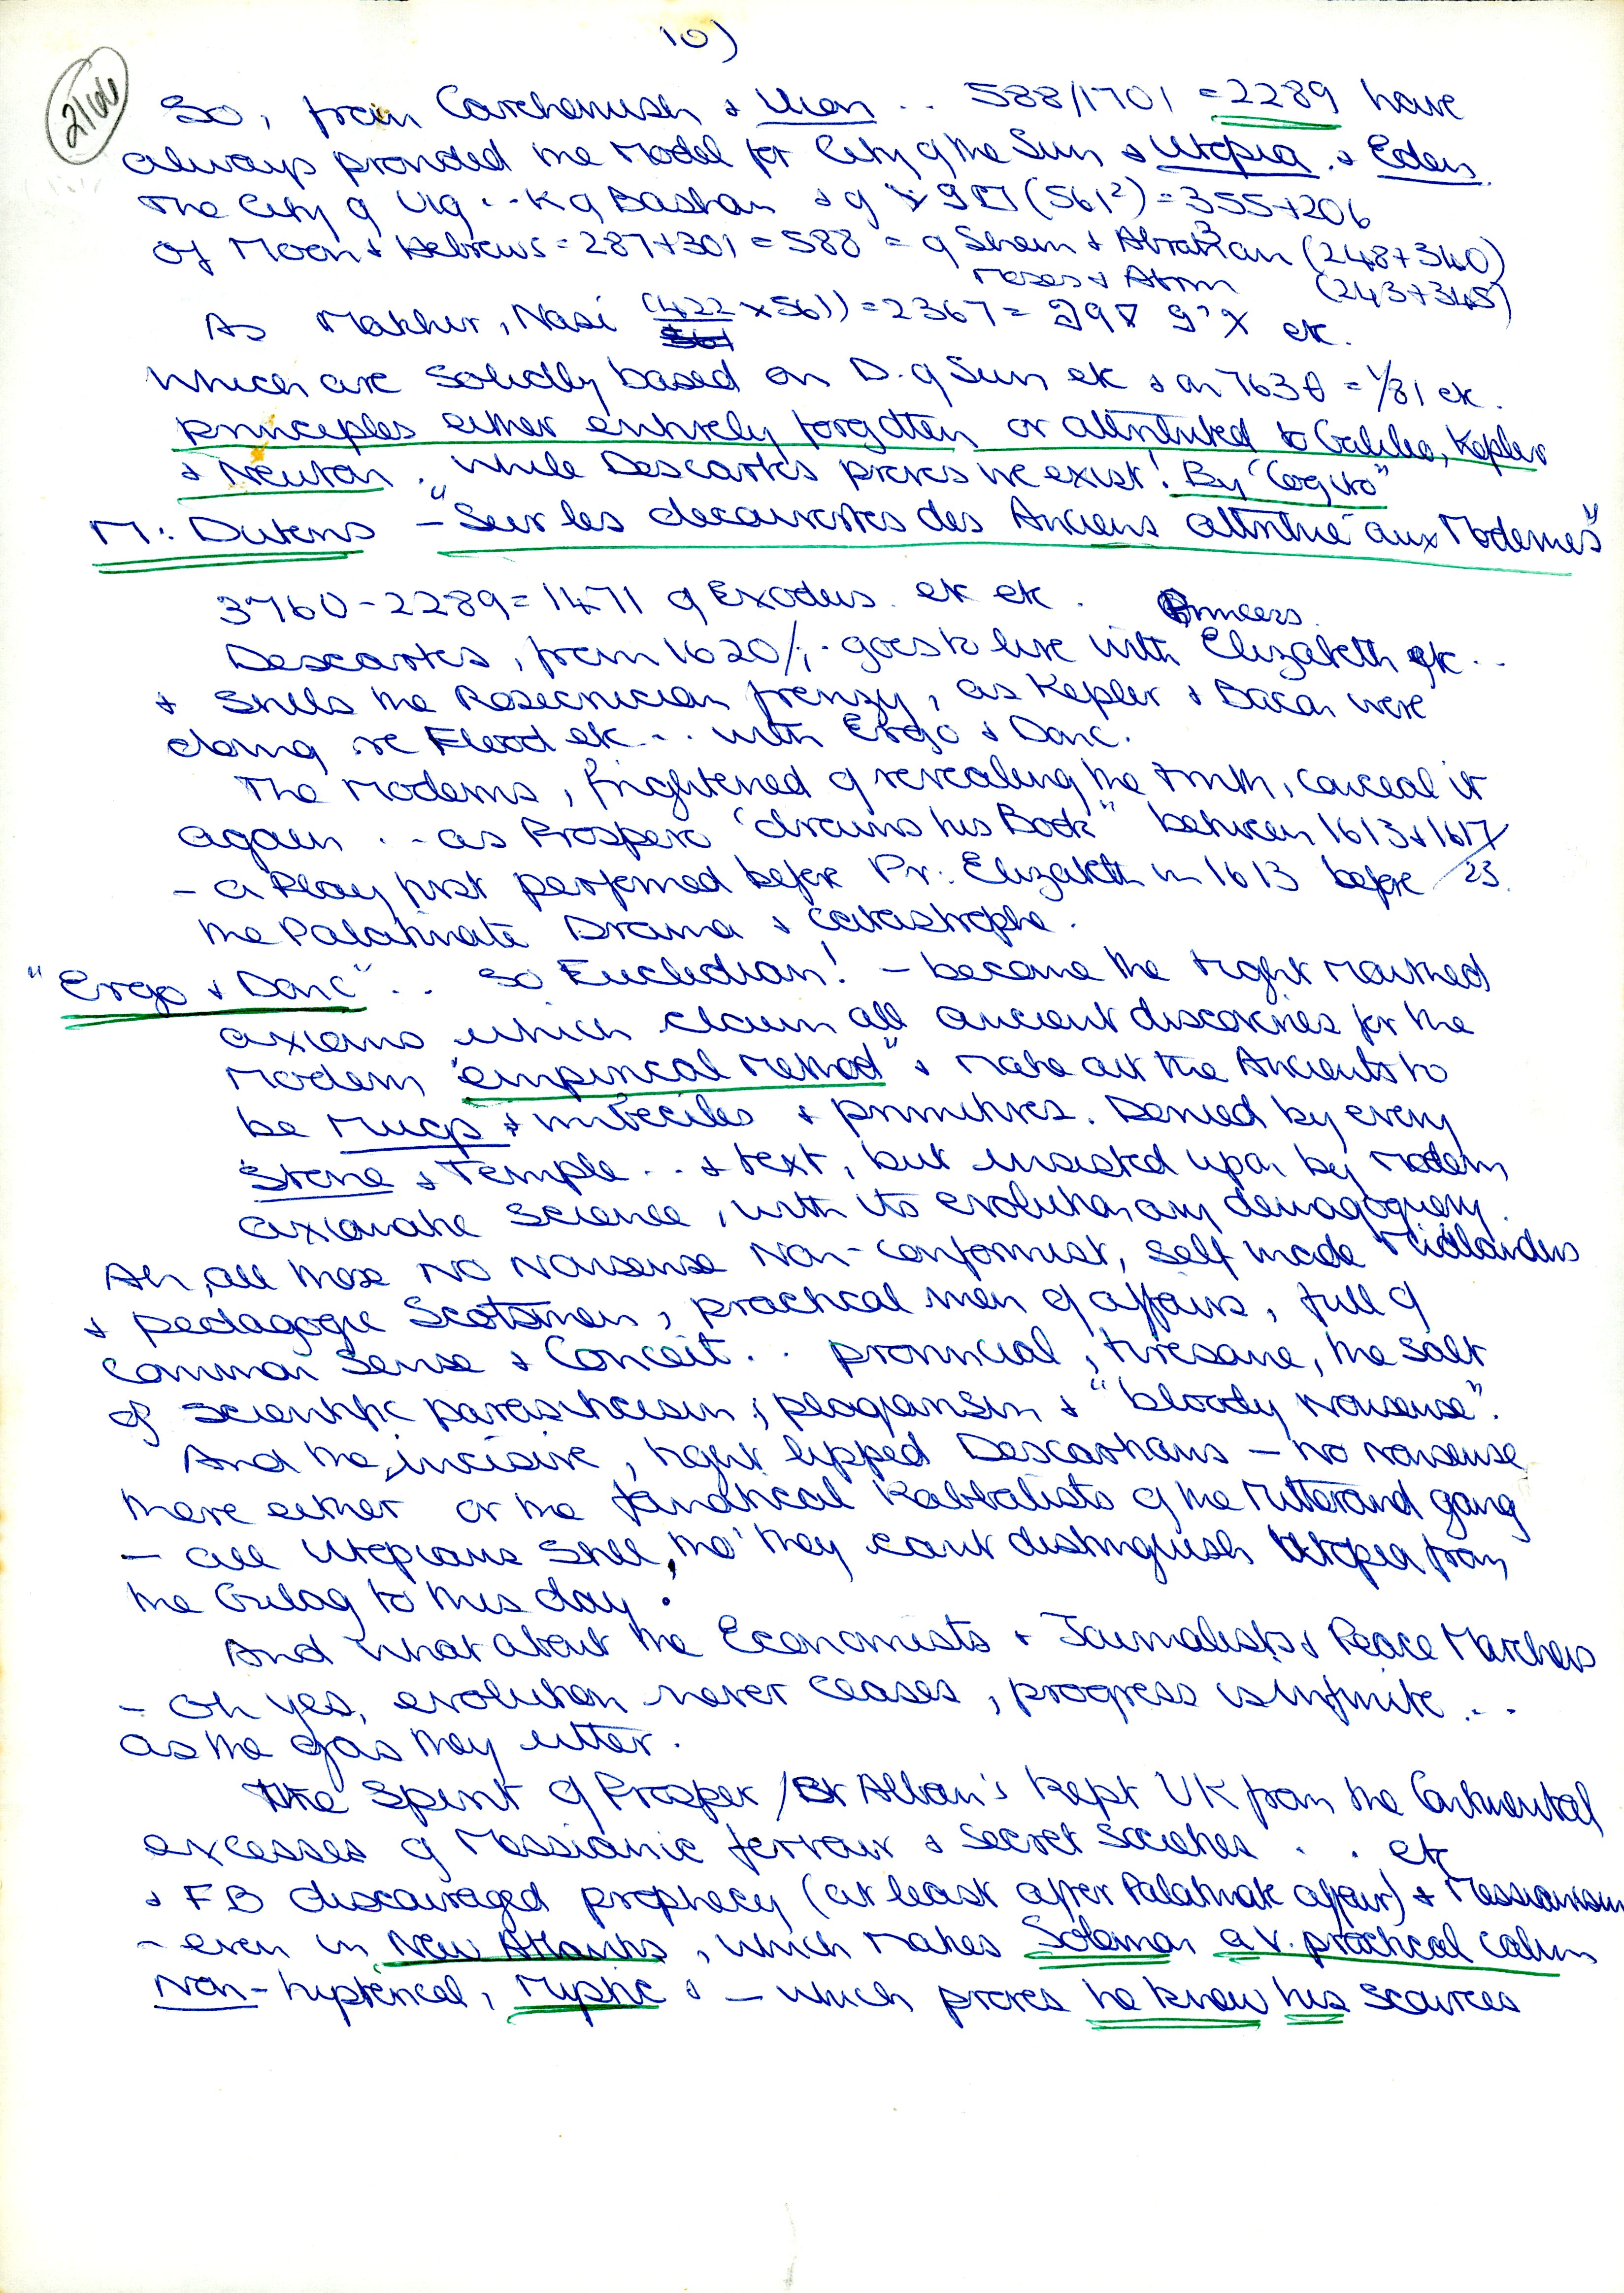 10)
So, from Carchemish & .. 588/1701 = 2289 have
always provided the Model for City of the Sun & Utopia. & Eden.
The City of Ug .. K of Bashan & of (561²) = 355+206
Of Moon & Hebrews = 287+301 = 588 = of Shem & Abraham (248+340)
Moses & Atom (243+345)
As Makhir, Nasi (422 x 561) = 2367 = etc.
Which are solidly based on D. of Sun etc & on 7630 = 1/81 etc.
principles either entirely forgotten or attributed to Galileo, Kepler
& Newton. While Descartes proves we exist! By "Cogito"
M: Dutens – "Sur les decouvertes des Anciens attribué aux Modernes"
3760 – 2289 = 1471 of Exodus. etc etc.
Princess
Descartes, from 1620/; . goes to live with Elizabeth etc ..
& stills the Rosecrucian frenzy, as Kepler & Bacon were
doing re Flood etc... with Ergo & Donc.
The Moderns, frightened of revealing the truth, conceal it
again .. as Prospero "drowns his Book" between 1613 & 1617/23.
– a Play first performed before Pr: Elizabeth in 1613 before
the Palatinate Drama & Catastrophe.
"Ergo & Donc" .. so Euclidian! – become the tight mouthed
axioms which claim all ancient discoveries for the
Modern "empirical Method" & make out the Ancients to
be Mugs & imbeciles & primitives. Denied by every
Stone & Temple... & text, but insisted upon by Modern
axiomatic Science, with its evolutionary demagoguery.
Ah, all these No Nonsense Non-conformist, self made Midlanders
& pedagogic Scotsmen, practical men of affairs, full of
common sense & Conceit.. provincial, tiresome, the salt
of scientific parasiticism, plagerism & "bloody nonsense".
And the, incisive, tight lipped Descartians – No nonsense
there either or the fanatical Kabbalists of the Mitterand gang
– all Utopians still, tho' they can't distinguish Utopia from
the Gulag to this day.
And what about the Economists & Journalists & Peace Marchers
– Oh yes, evolution never ceases, progress is infinite ...
as the gas they utter.
The spirit of Prosper/St Alban's kept UK from the Continental
excesses of Messianic fervour & Secret Societies . . etc
& FB discouraged prophecy (at least after Palatinate affair) & Messianism
– even in New Atlantis, which makes Soloman a v. practical calm
Non-hysterical, Mystic & – which proves he knew his sources